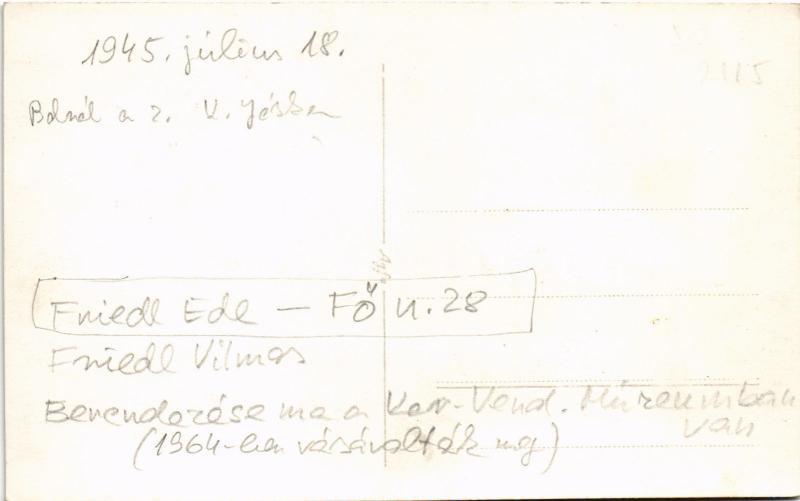 1945. július 18.
2115
Balról a 2. V. Jóska
Friedl Ede — Fő u. 28
Friedl Vilmos
Berendezése ma a Ker-Vend. Múzeumban
van
(1964-ben vásárolták meg)